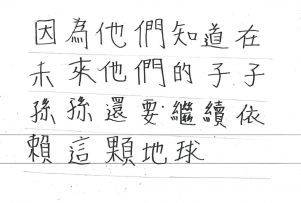 因為他們知道在
未來他們的子子
孫孫還要繼續依
賴這顆地球